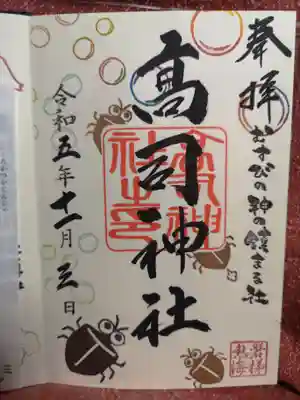 奉拝
むすびの神の鎮まる社
髙司神社
令和五年十一月三日